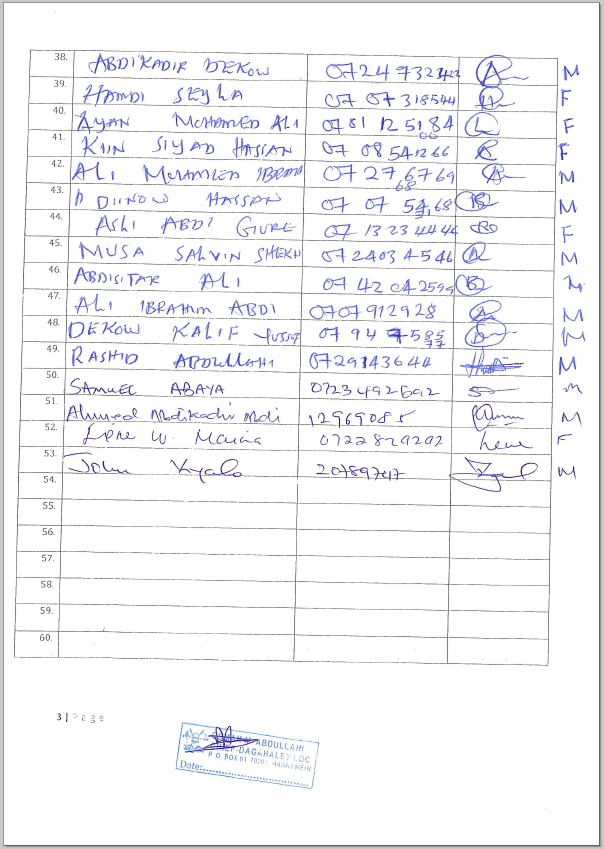 38. ABDIKADIR DEKOW 0724 732422 M
39. HAMDI SEYLA 07 07 318544 F
40. AYAN MOHAMED ALI 0781 125184 F
41. KIIN SIYAD HASSAN 07 08 541266 F
42. ALI MOHAMED IBRAHIM 07 27 6769 68 M
43. DIINOW HASSAN 07 07 54,68 M
44. ASLI ABDI GIURE 07 13 23 4444 F
45. MUSA SALVIN SHEKH 072403 4546 M
46. ABDISITAR ALI 07 42 042599 M
47. ALI IBRAHIM ABDI 0707912928 M
48. DEKOW KALIF YUSSUF 07 94 585 77 M
49. RASHID ABDULLAHI 0729143644 M
50. SAMUEL ABAYA 0723492692 M
51. Ahmed Abdikadir Abdi 12969085 M
52. Irene W. Maina 0722829202 Irene F
53. John Kyalo 20789747 M
54.
55.
56.
57.
58.
59.
60.
3 | Page
ABDULLAHI
CHIEF-DAGAHALEY LOC
P O BOX 01 70201 HABASWEIN
Date: